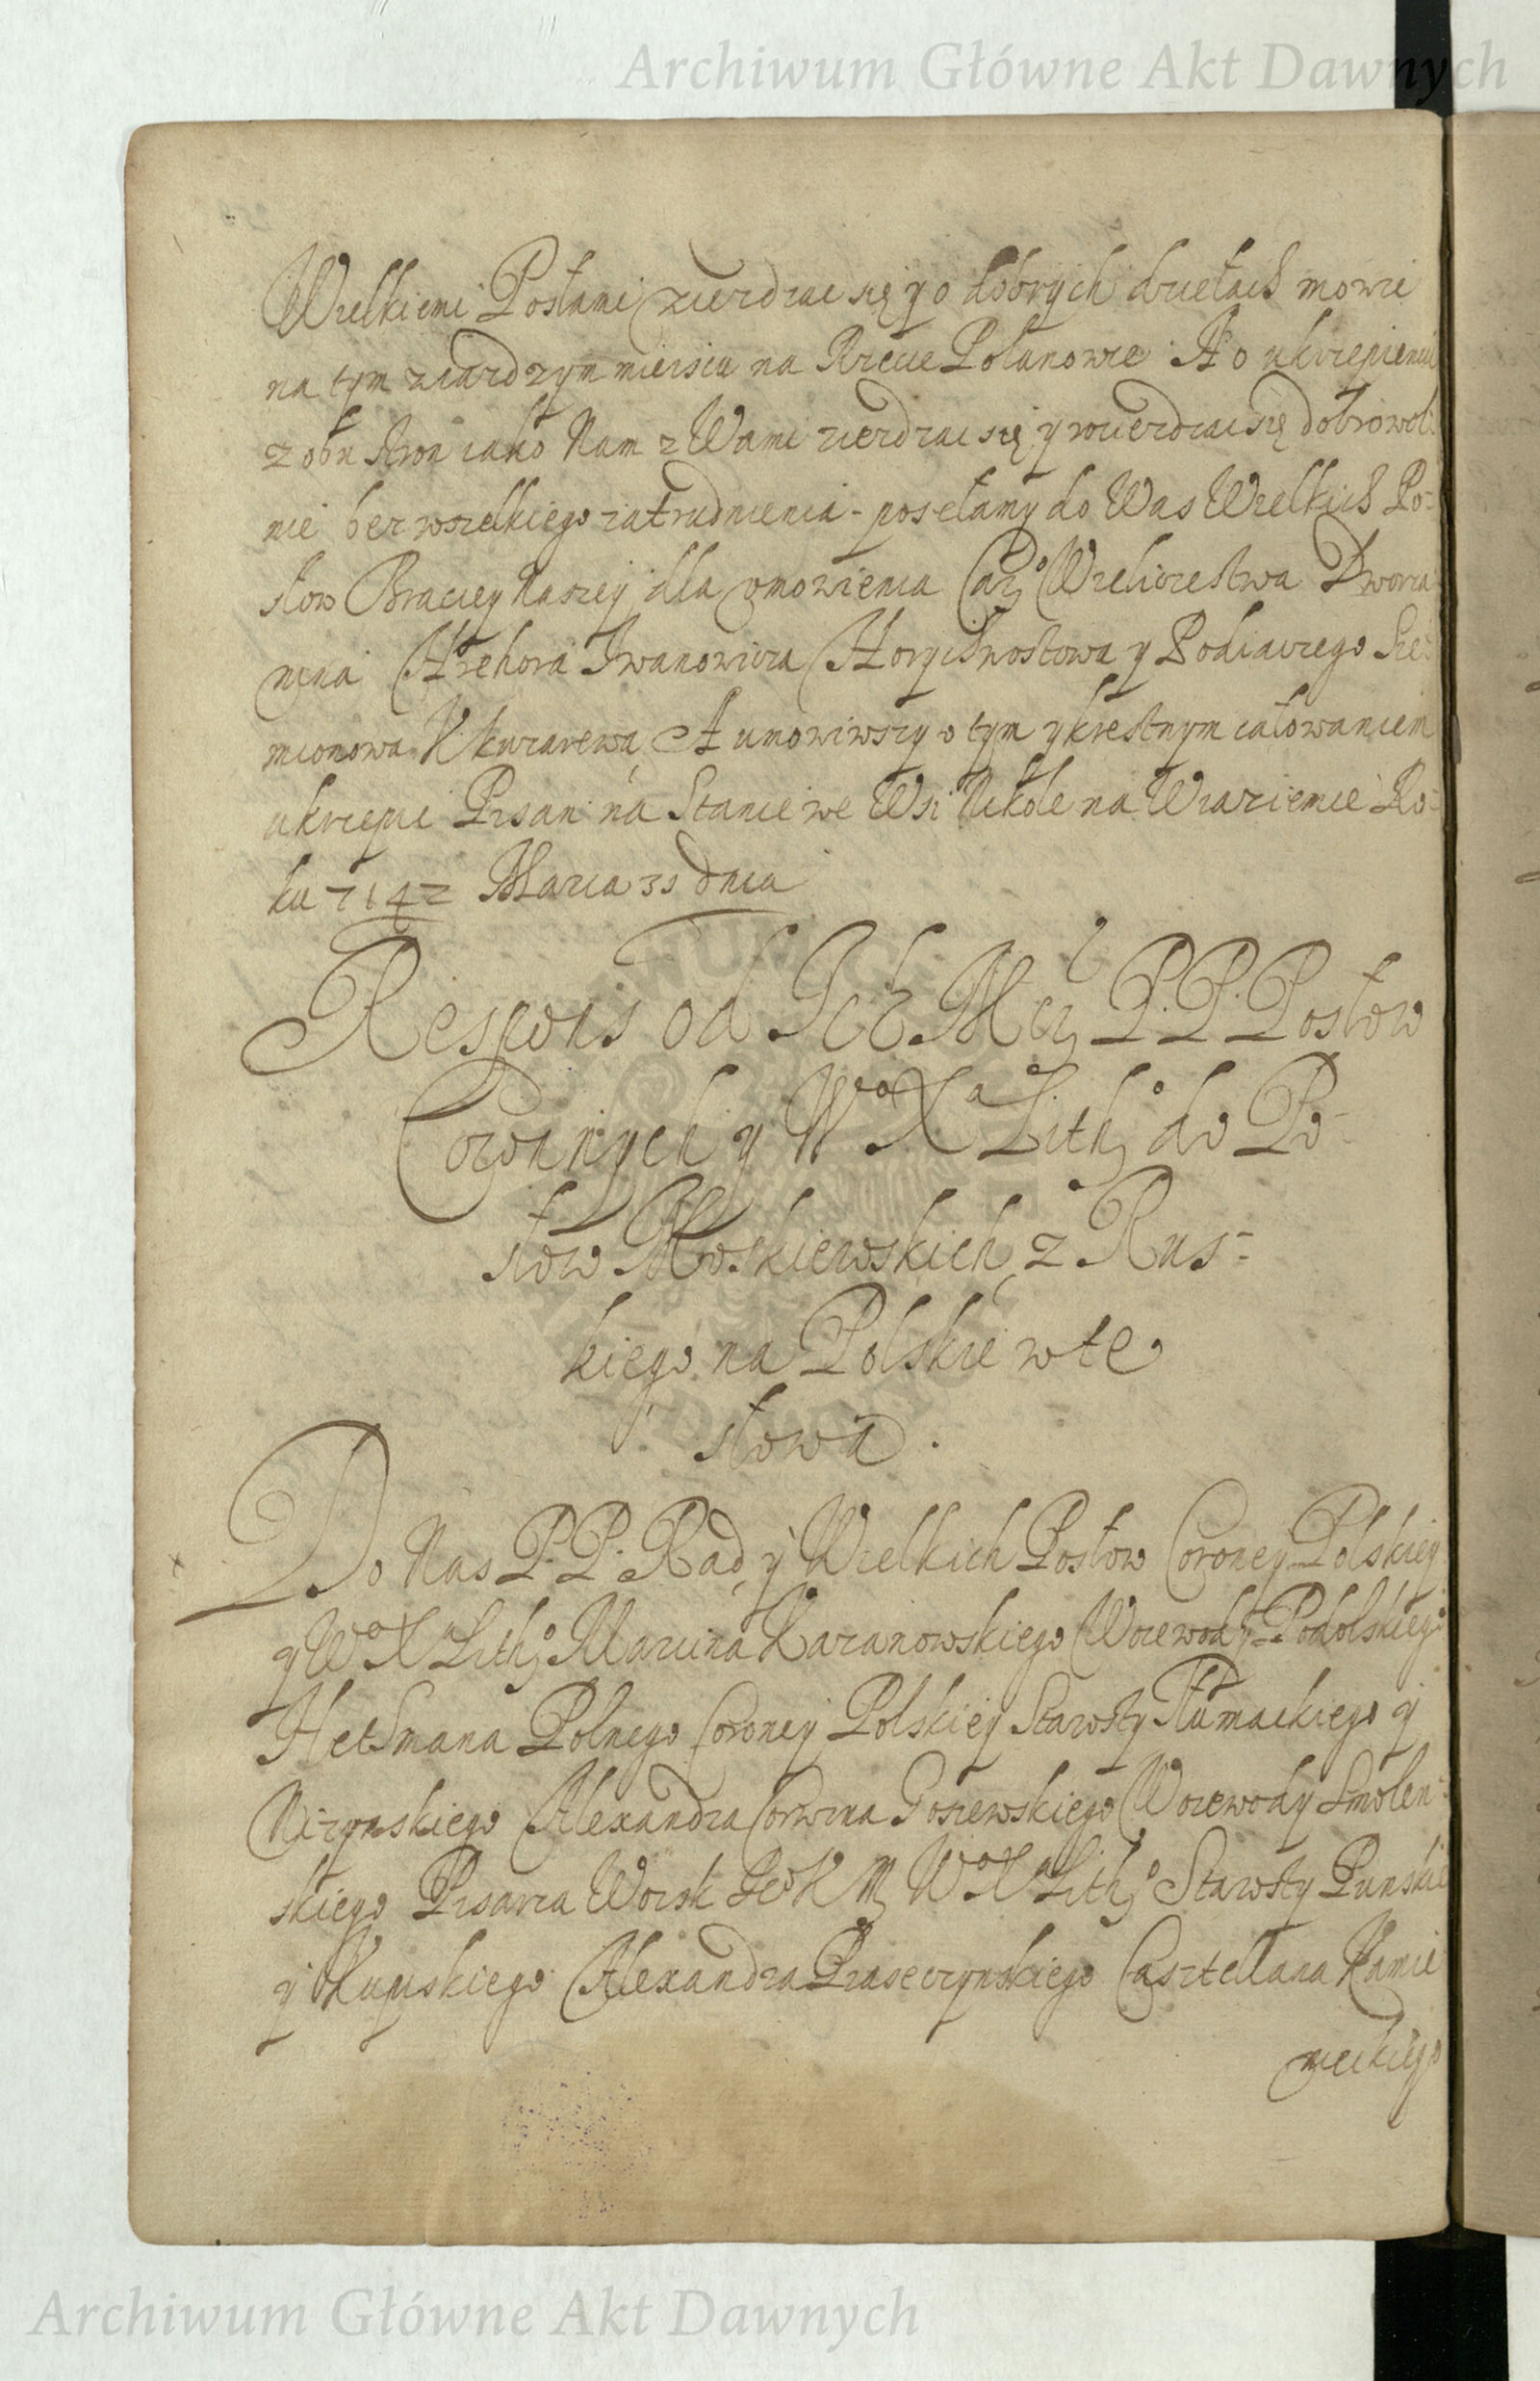 Archiwum Główne Akt Dawnych
Wielkiemi Posłami zierdzac się y o dobrych dziełach mowic
na tym ziazdzym mieiscu na Rzece Polanowie. A o ukrepieniu
z obu stron iako Nam z Wami zierdzac się y rozierdzac się dobrowol:
nie bez wszelkiego zatrudnienia - posełamy do Was Wielkich Po:
słow Braciey Naszey dla umowienia Carz.º Wieliczestwa Dworza
nina Hrehora Iwanowicza y Podiaczego Sie:
mionowa A umowiwszy o tym y krestnym całowaniem
ukrzepic Pisan na Stanie we Wsi na Wiaziemie Ro:
ku 7142 Marca 31 dnia
Respons od Ich Mcz P. P. Posłow
Coronnych y Wº Xª Lith.º do Po-
słow Moskiewskich z Rus:
kiego na Polskie w te
słowa.
Do Nas P. P. Rad y Wielkich Posłow Coroney Polskiey
y Wº Xª Lith.º Marcina Kazanowskiego Woiewody Podolskiego
Hetmana Polnego Coroney Polskiey Starosty Tłumackiego y
Alexandra Corwina Gosiewskiego Woiewody Smolen:
skiego Pisarza Woisk Jeº K M Wº Xª Lith.º Starosty Punskie
y Alexandra Piaseczynskiego Casztellana Kamie
nieckiego
Archiwum Główne Akt Dawnych